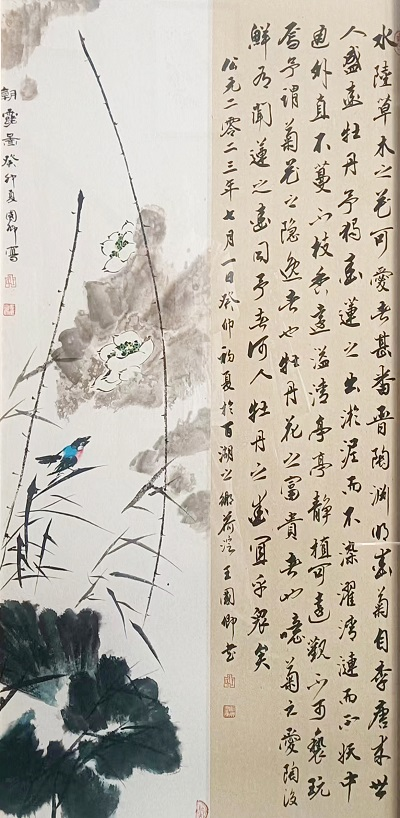 水陸草木之花可愛者甚蕃晋陶淵明愛菊自李唐来世
人盛愛牡丹予獨愛蓮之出淤泥而不染濯清漣而不妖中
通外直不蔓不枝香遠溢清亭亭静植可遠觀不可褻玩
焉予謂菊花之隐逸者也牡丹花之富貴者也噫菊之愛陶後
鮮有聞蓮之愛同予者何人牡丹之愛宜乎眾矣
公元二零二三年七月一日癸卯初夏於百湖之鄉荷王國卿書
朝露癸卯夏國卿寫